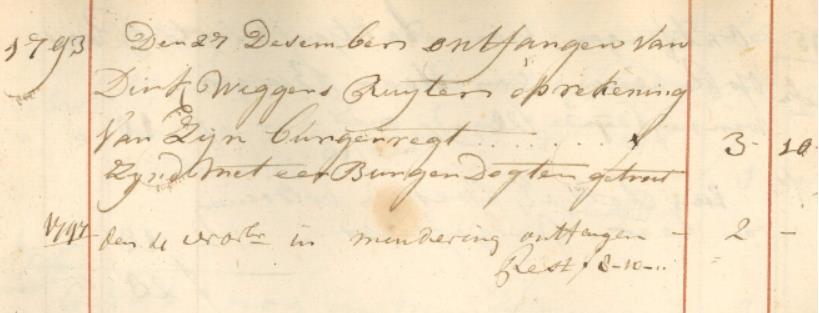 1793 Den 27 Desember ontfangen Van
Dirk Weggers Ruyter op rekening
Van Zijn burgerregt . . . . . . . 3 - 10 -
Zynde Met een Burger Dogter getrout
1797 den 4 in mindering ontfangen - 2 -
Rest f 8-10-..